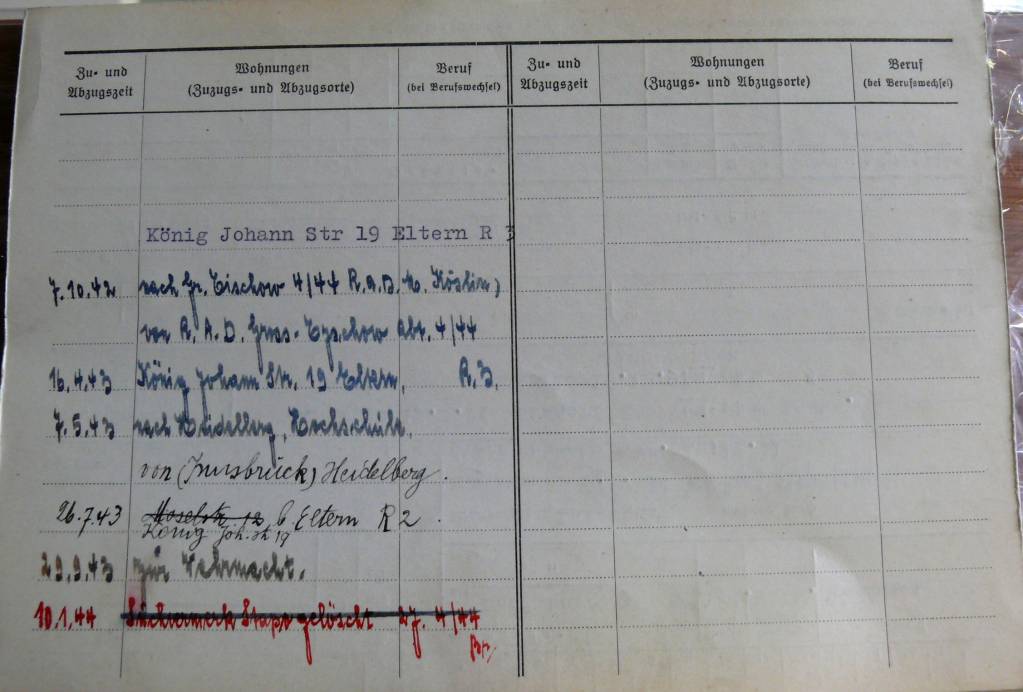 Zu- und Abzugszeit
Wohnungen (Zuzugs- und Abzugsorte)
Beruf (bei Berufswechsel)
Zu- und Abzugszeit
Wohnungen (Zuzugs- und Abzugsorte)
Beruf (bei Berufswechsel)
König Johann Str 19 Eltern R 3
7.10.42 nach Gr. Tischow 4/44 R.A.D. Köslin)
von R. A. D. Gross-Tyschow Abt. 4/44
16.4.43 König Johann Str. 19 Eltern, R.3.
7.5.43 nach Heidelberg, Hochschule.
von (Innsbruck) Heidelberg.
26.7.43 Moselstr. 12, b Eltern R2.
König Joh. str 19
29.9.43 zur Wehrmacht.
10.1.44 Suchvermerk Stapo gelöscht 27. 4/44